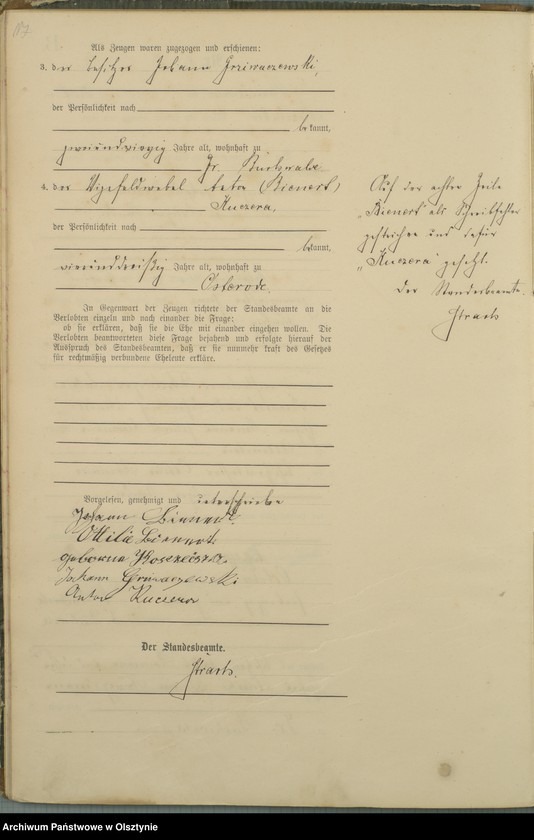 Als Zeugen waren zugezogen und erschienen:
3. der Besitzer Johann
der Persönlichkeit nach
bekannt,
zweiundvierzig Jahre alt, wohnhaft zu
Gr.
4. der Vizefeldwebel Anton (Bienert)
Kuczera,
der Persönlichkeit nach
bekannt,
vierunddreißig Jahre alt, wohnhaft zu
Osterode.
In Gegenwart der Zeugen richtete der Standesbeamte an die
Verlobten einzeln und nach einander die Frage:
ob sie erklären, daß sie die Ehe mit einander eingehen wollen. Die
Verlobten beantworteten diese Frage bejahend und erfolgte hierauf der
Ausspruch des Standesbeamten, daß er sie nunmehr kraft des Gesetzes
für rechtmäßig verbundene Eheleute erkläre.
Vorgelesen, genehmigt und unterschrieben
Johann Bienert.
Ottilie Bienert
geborene
Johann
Anton Kuczera
Der Standesbeamte.
Auf der achten Zeile
„Bienert“ als Schreibfehler
gestrichen und dafür
„Kuczera“ gesetzt.
Der Standesbeamte.
Archiwum Państwowe w Olsztynie